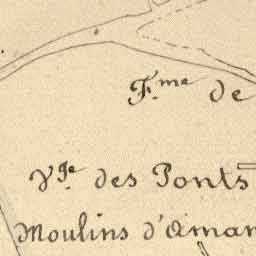 F.me de
Vge des Ponts
Moulins d'Aman